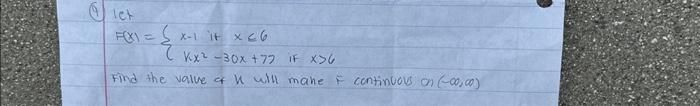 ④ let
F(x) = { x-1 if x ≤ 6
{ Kx² - 30x + 77 if x > 6
Find the value of K will make F continuous on (-∞, ∞)